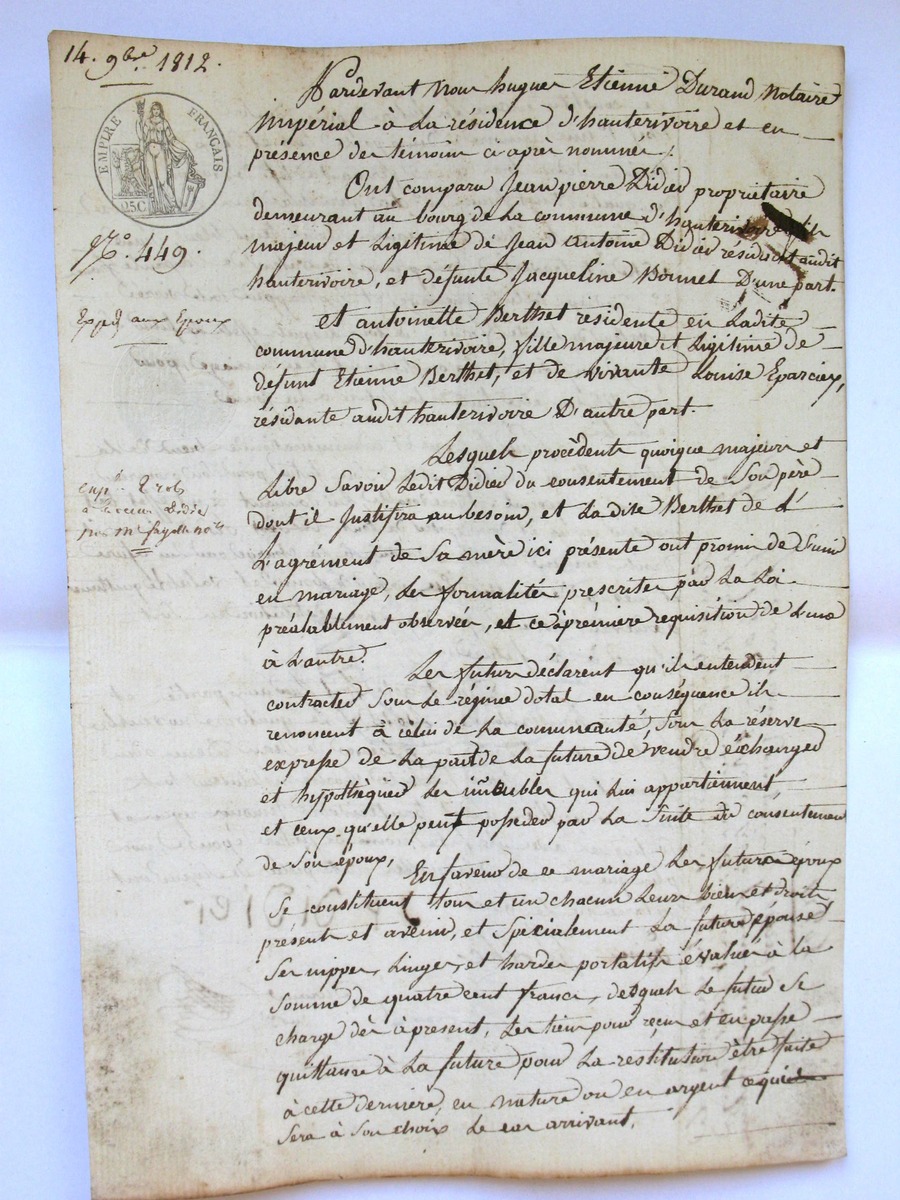 14. 9bre 1812.
EMPIRE FRANÇAIS
25C
N.o 449.
aux Epoux
Pardevant Nous hugues Etienne Durand Notaire
impérial à La résidence d'hauterivoire et en
présence des témoins ci après nommés.
Ont comparu Jean pierre Didier propriétaire
demeurant au bourg de La commune d'hauterivoire fils
majeur et Légitime de Jean Antoine Didier résidant audit
hauterivoire, et défunte Jacqueline Bonnet D'une part.
et antoinette Berthet residente en Ladite
commune d'hauterivoire, fille majeure et Légitime de
défunt Etienne Berthet, et de vivante Louise Eparcieux,
résidante audit hauterivoire D'autre part.
Lesquels procèdents quoique majeurs et
Libre Savoir Ledit Didier du consentement de Son père
dont il Justifira au besoin, et La dite Berthet de L'
L'agrément de Sa mère ici présente ont promis de S'unir
en mariage, Les formalités prescrites par La Loi
préalablement observées, et ce à première requisition de L'une
à L'autre.
Les futurs déclarent qu'ils entendent
contracter Sous Le régime dotal en conséquence ils
renoncent à célui de La communauté, Sous La réserve
expresse de La part de La future de vendre échanger
et hypothèquer Les imeubles qui Lui appartiennent,
et ceux qu'elle peut posseder par La Suite du consentement
de Son époux,
En faveur de ce mariage Les futurs époux
Se constituent tous et un chacun Leurs biens et droits
présents et avenir, et Spécialement La future épouse
Ses nippes, Linges, et hardes portatifs évalués à la
Somme de quatre cent francs, desquels Le futur Se
charge dès à présent, Les tiens pour reçus et en passe
quittance à La future pour La restitution être faite
à cette dernière, en nature ou en argent ce qui
Sera à Son choix Le cas arrivant.